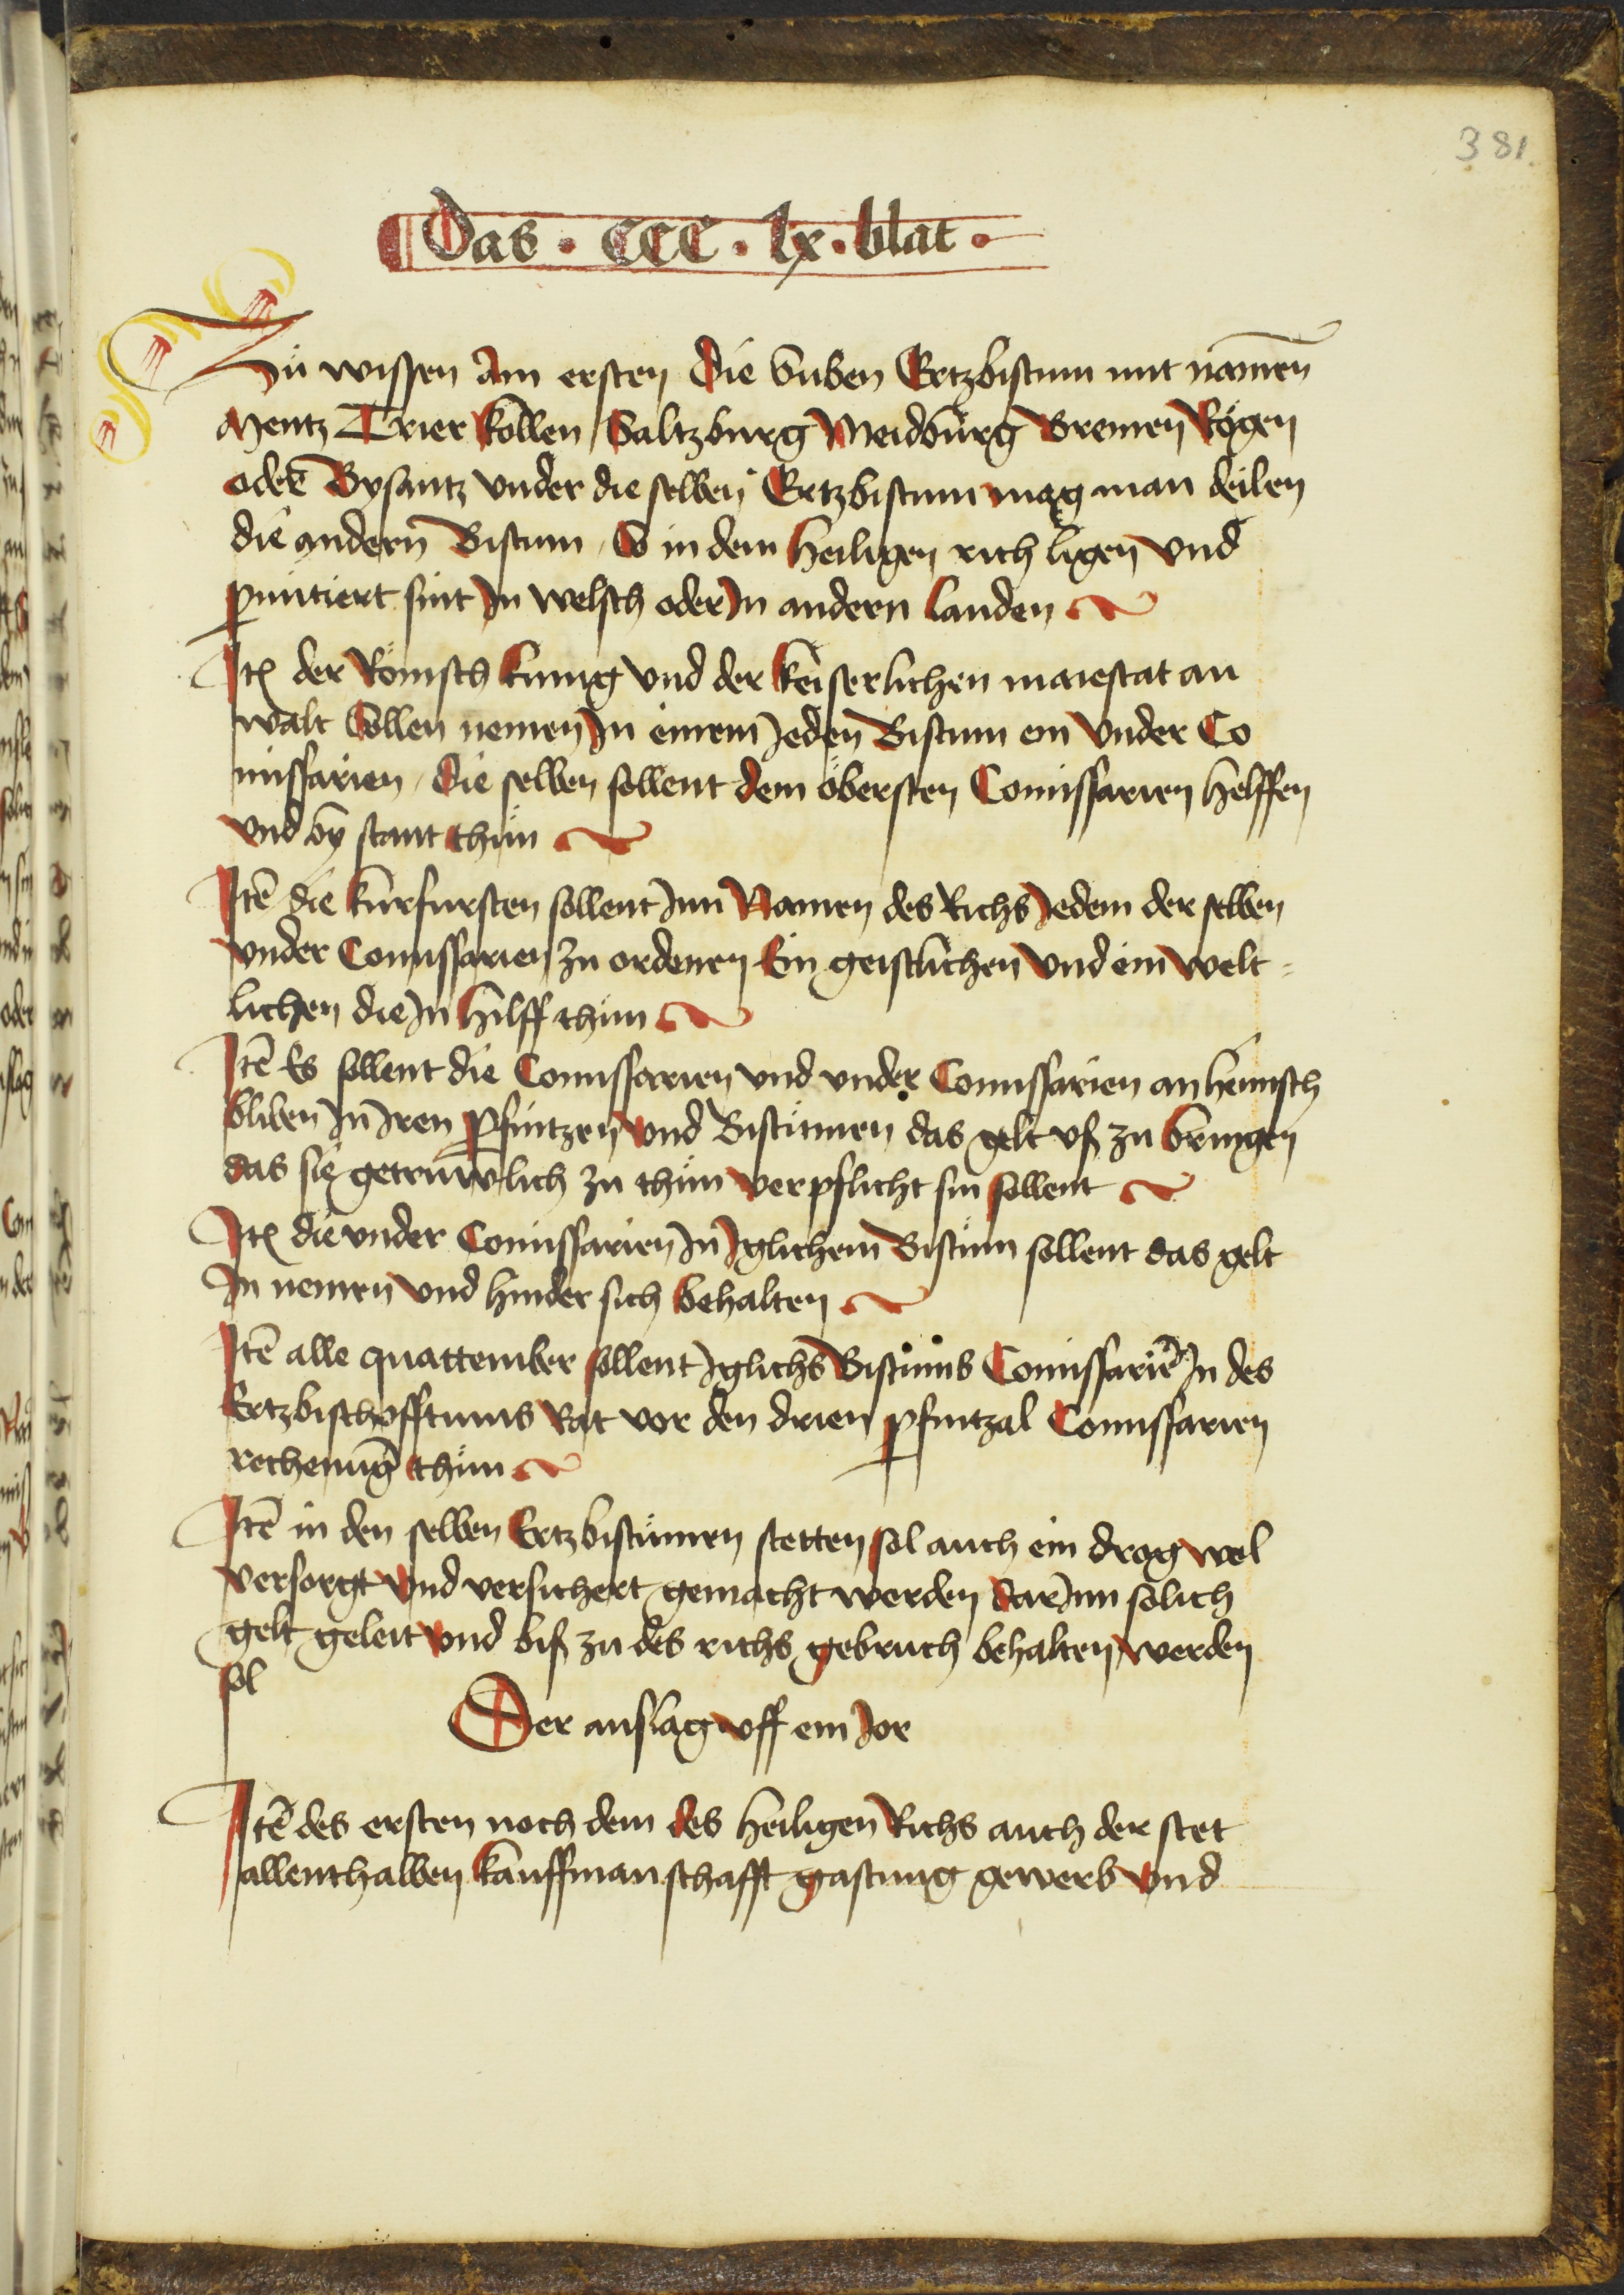 381.
Das · CCC · lx · blat ·
Zü wissen Am ersten Die Suben Ertzbistum mit namen̄
Mentz Trier Köllen Saltzburg Meidburg Bremen Rögen
oder̄ Bysantz vnder die selben Ertzbistum mag man deilen
die andern Bistum / So in dem heiligen rich ligen vnd
puintiert sint In welsch oder In andern landen
Itē der Römisch kunig vnd der keiserlichen maiestat an
walt Sollen nemen In einem Jeden Bistum ein vnder Co
missarien / Die selben sollent dem öbersten Comissarien helffen
vnd by stant thün
Itē die kurfursten sollent Inn Namen des Richs Jedem der selben
vnder Comissarien zu ordenen Ein geistlichen vnd ein welt=
lichen die In hilff thün
Itē Es sollent die Comissarien vnd vnder Comissarien anheimsch
bliben In Iren pfintzen vnd Bistümen das gelt vß zu bringen
das sie getruwlich zu thün verpflicht sin sollent
Itē die vnder Comissarien In Iglichem Bistüm sollent das gelt
In nemen vnd hinder sich behalten
Itē alle quattember sollent Iglichs Bistůms Comissariē In des
Ertzbischofftums Rat vor den drien pfintzal Comissarien
rechenūg thün
Itē in den selben Ertzbistümen stetten sol auch ein drog wol
versorgt vnd versichert gemacht werden dar Inn solich
gelt geleit vnd biß zu des richs gebruch behalten werden
sol
Der anslag vff ein Jor
Itē des ersten noch dem des heiligen Richs auch der stet
allenthalben kauffmanschafft gastung gewerb vnd